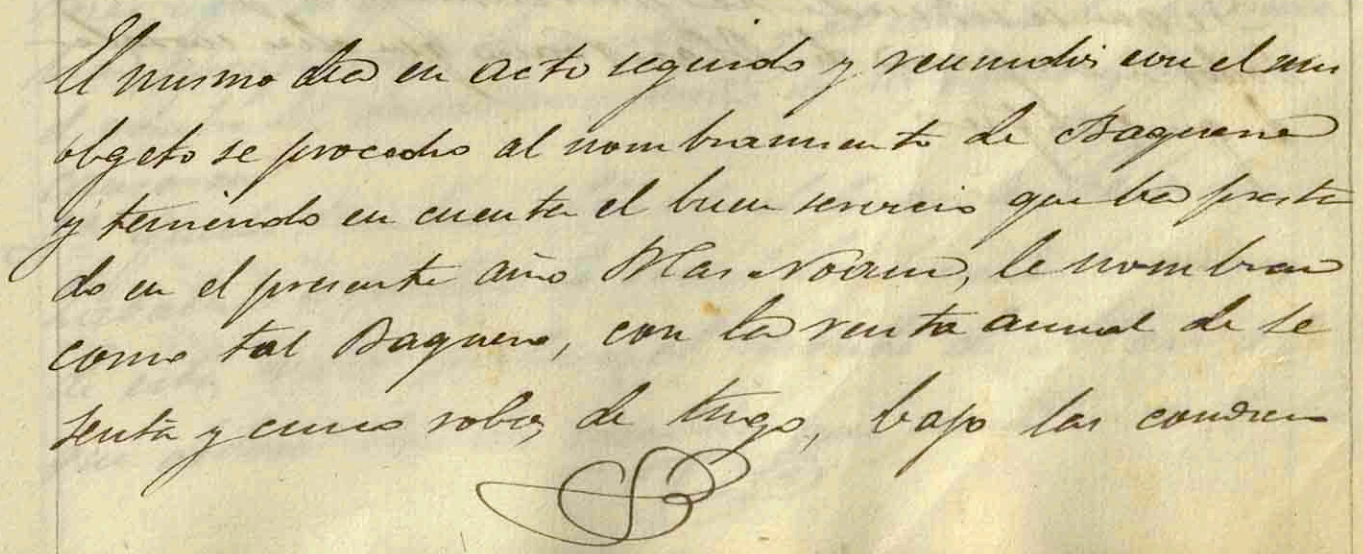 El mismo dia en acto seguido y reunidos con el mis
obgeto se procedio al nombramiento de Baquero
y teniendo en cuenta el buen servicio que ha presta
do en el presente año Blas Noain, le nombran
como tal Baquero, con la renta anual de se
senta y cinco robos de trigo, bajo las condicio